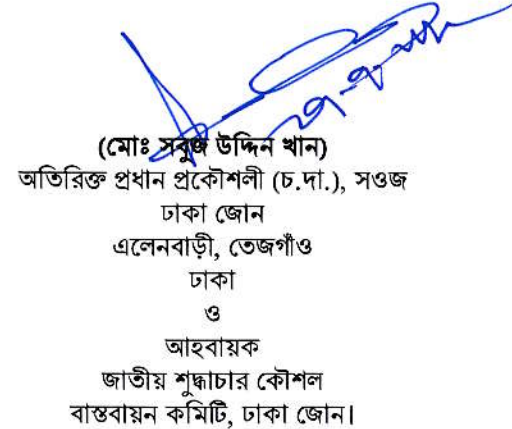 (মোঃ সবুজ উদ্দিন খান)
অতিরিক্ত প্রধান প্রকৌশলী (চ.দা.), সওজ
ঢাকা জোন
এলেনবাড়ী, তেজগাঁও
ঢাকা
ও
আহবায়ক
জাতীয় শুদ্ধাচার কৌশল
বাস্তবায়ন কমিটি, ঢাকা জোন।